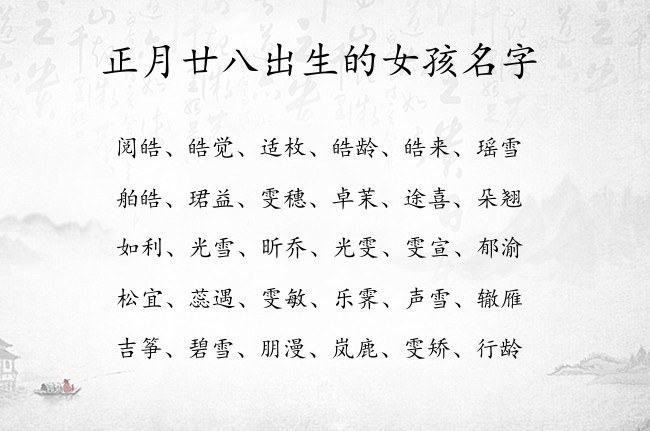 正月廿八出生的女孩名字
阅皓、皓觉、适枚、皓龄、皓来、瑶雪
舶皓、珺益、雯穗、卓茉、途喜、朵翘
如利、光雪、昕乔、光雯、雯宣、郁渝
松宜、蕊遇、雯敏、乐霁、声雪、辙雁
吉筝、碧雪、朋漫、岚鹿、雯矫、行龄